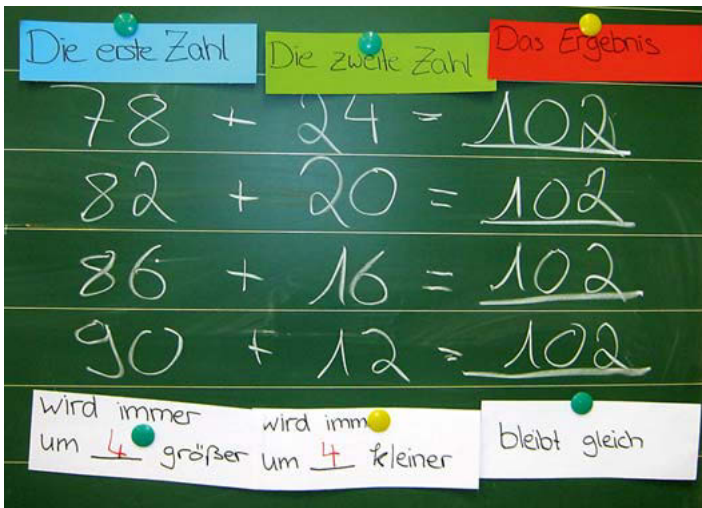 Die erste Zahl Die zweite Zahl Das Ergebnis
78 + 24 = 102
82 + 20 = 102
86 + 16 = 102
90 + 12 = 102
wird immer
um 4 größer
wird imm
um 4 kleiner
bleibt gleich